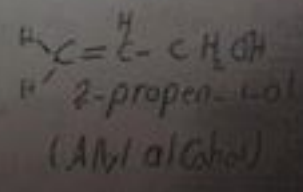 H H
C = C - CH2OH
H
2-propen-1-ol
(Allyl alcohol)